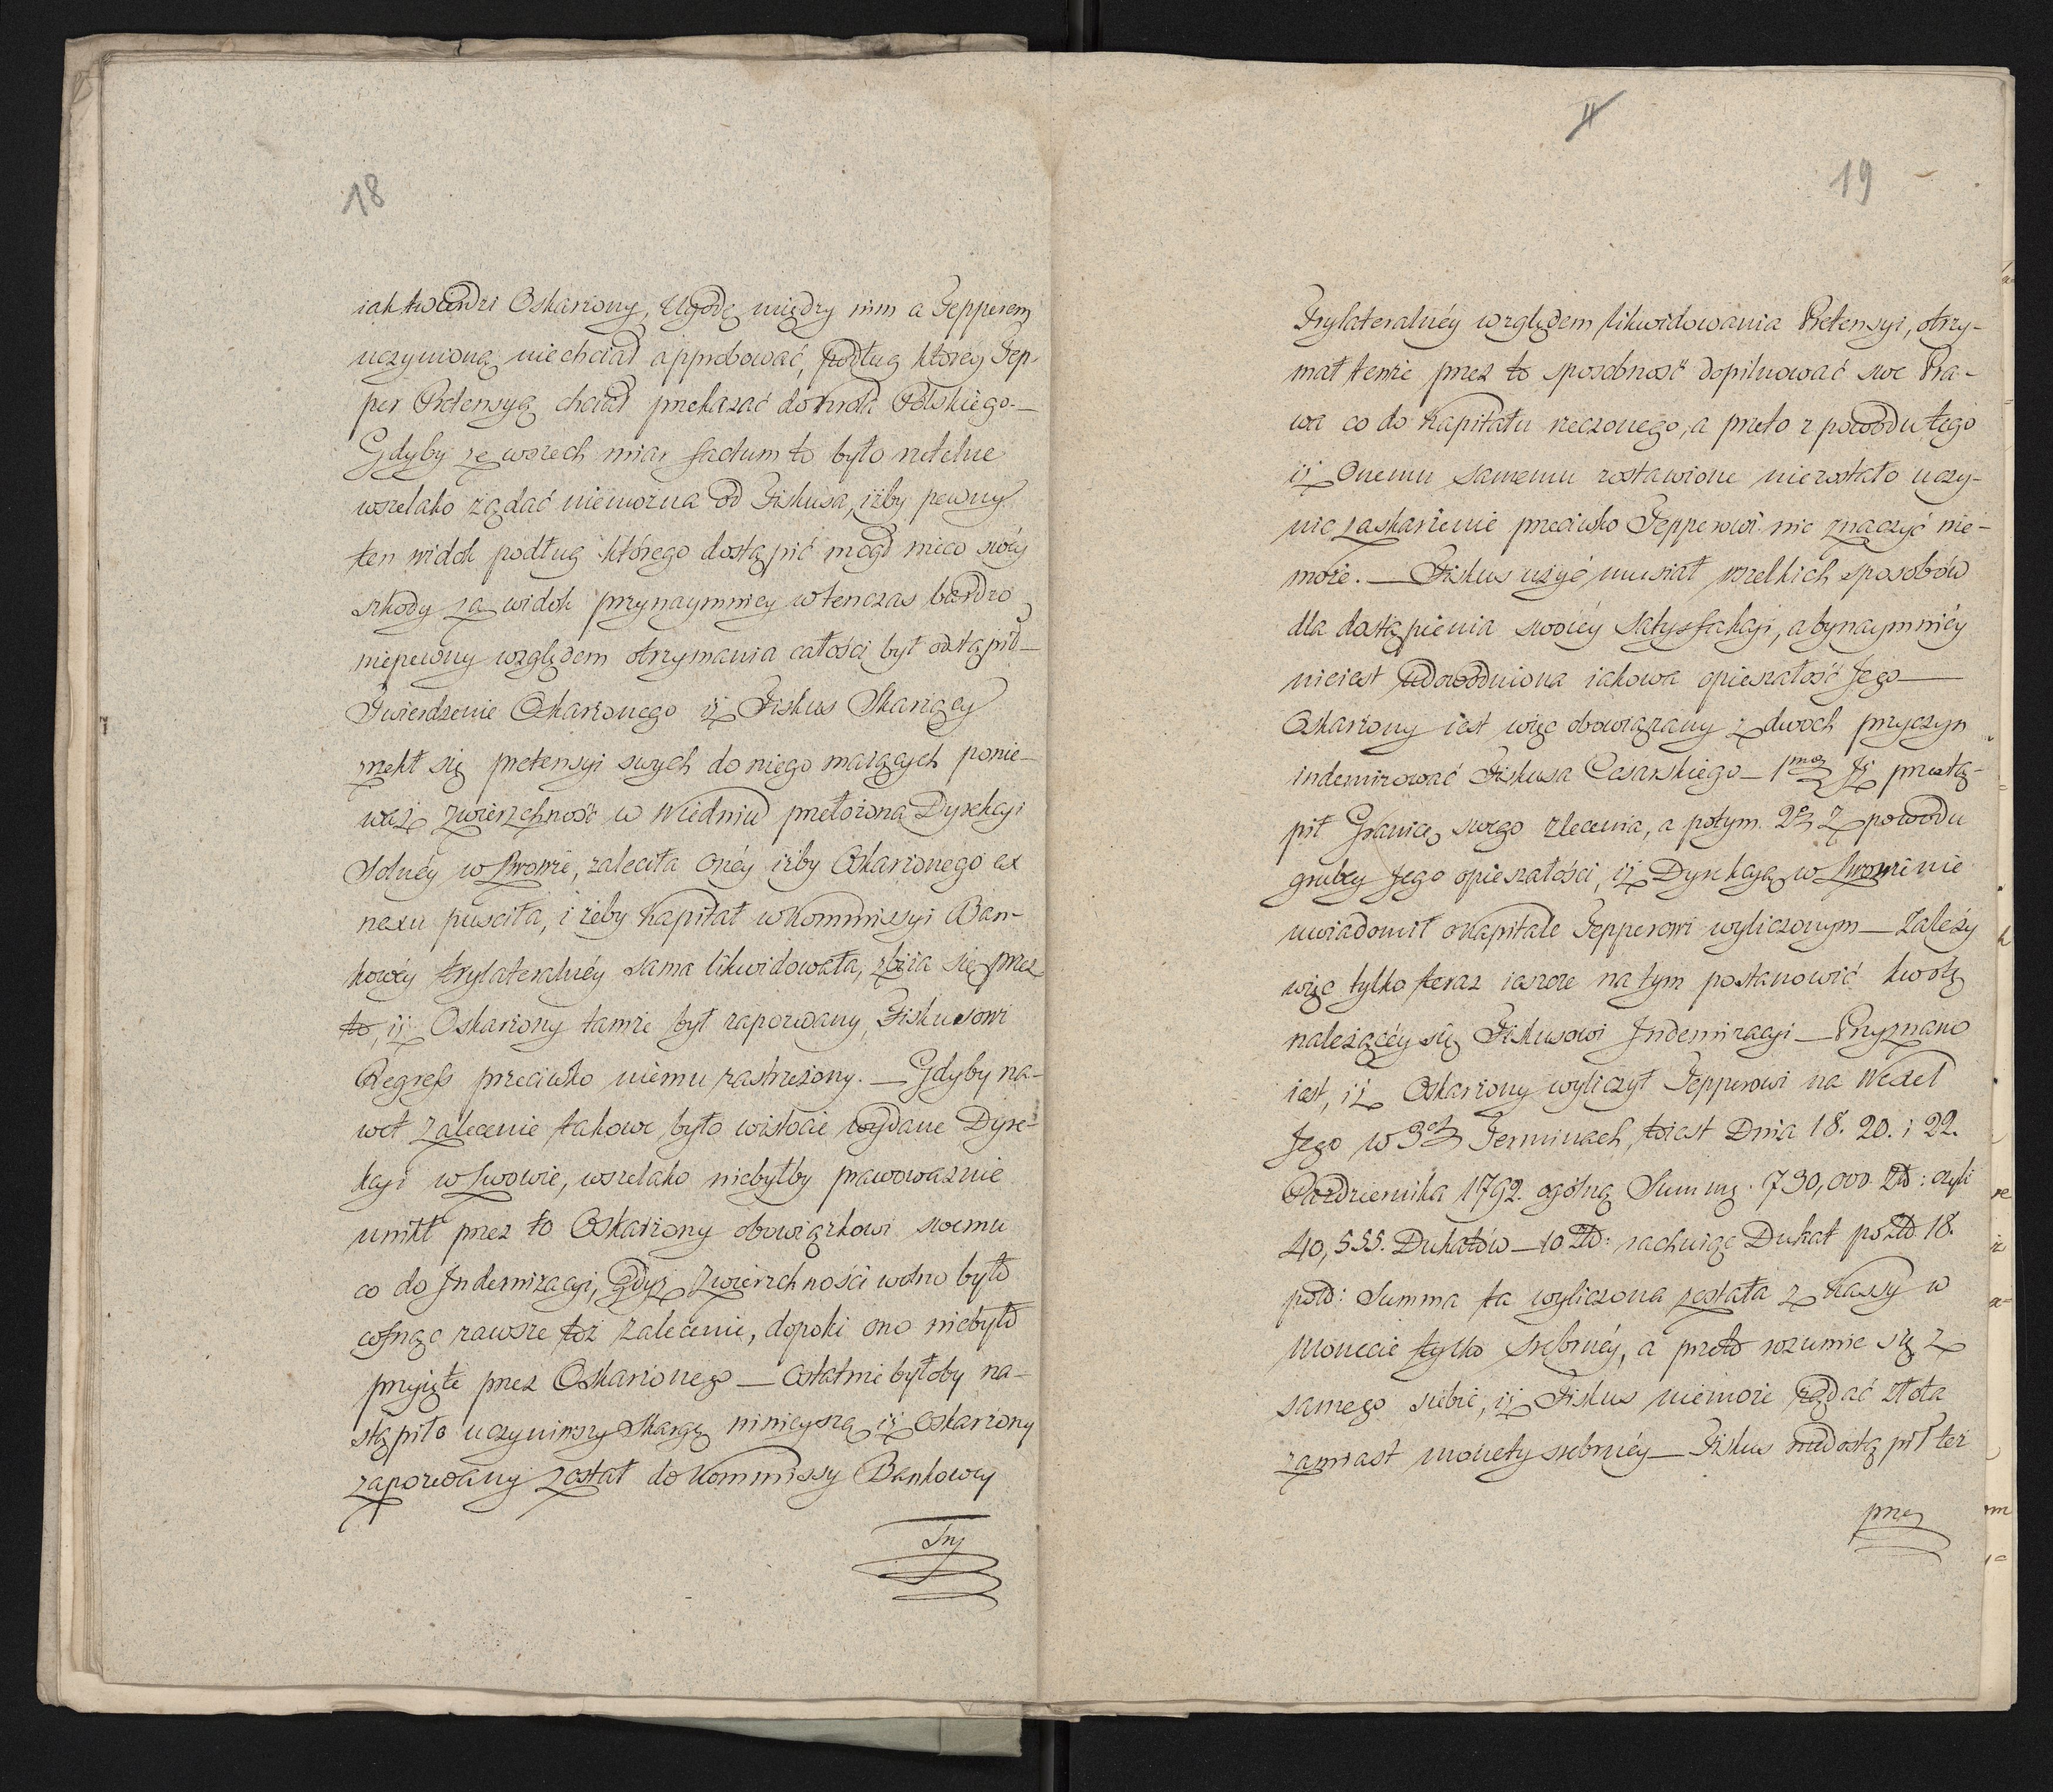 18
iak twierdzi Oskarżony, Ugodę między nim a Tepperem
uczynioną niechciał approbować, podług któréy Tep-
per Pretensyą chciał przekazać do Króla Polskiego. —
Gdyby ze wszech miar factum to było rzetelne
wszelako żądać niemożna od Fiskusa, iżby pewny
ten widok podług którego dostąpić mógł nieco swéy
szkody za widok przynaymniey wtenczas bardzo
niepewny względem otrzymania całości był odstąpił —
Twierdzenie Oskarżonego iż Fiskus Skarżący
zrzekł się pretensyi swych do niego maiących ponie-
waż Zwierzchność w Wiedniu przełożona Dyrekcyi
Solnéy w Lwowie, zaleciła onéy iżby Oskarżonego ex
nexu puściła, i żeby Kapitał w Kommissyi Ban-
kowéy trylateralnéy sama likwidowała, zbiia się przez
to, iż Oskarżony tamże był zapozwany, Fiskusowi
Regreſs przeciwko niemu zastrzeżony. — Gdyby na-
wet Zalecenie takowe było wistocie wydane Dyre-
kcyi w Lwowie, wszelako niebyłby prawoważnie
unikł przez to Oskarżony obowiązkowi swemu
co do Indemizacyi, gdyż Zwierzchności wolno było
cofnąć zawsze toż Zalecenie, dopoki ono niebyło
przyięte przez Oskarżonego — Ostatnie byłoby na-
stąpiło uczyniwszy Skargę ninieyszą iż Oskarżony
zapozwany został do Kommissy Bankowey
Try
19
Trylateralnéy względem likwidowania Pretensyi, otrzy-
mał temże przez to sposobność dopilnować swe Pra-
wa co do Kapitału rzeczonego, a przeto z powodu tego
iż Onemu samemu zostawione niezostało uczy-
nić zaskarżenie przeciwko Tepperowi nic znaczyć nie-
może. — Fiskus użyć musiał wszelkich sposobów
dla dostąpienia swoiéy Satysfakcyi, a bynaymniéy
nieiest udowodniona iakowa opieszałość Jego —
Oskarżony iest więc obowiązany z dwoch przyczyn
indemizować Fiskusa Cesarskiego — 1mo Iż przestą-
pił Granicę swego zlecenia, a potym 2o Z powodu
grubey Jego opieszałości, iż Dyrekcyą w Lwowie nie
uwiadomił o Kapitale Tepperowi wyliczonym — Zależy
więc tylko teraz ieszcze na tym postanowić kwotę
należącéy się Fiskusowi Indemizacyi — Przyznano
iest, iż Oskarżony wyliczył Tepperowi na Wexel
Jego w 3ch Terminach, toiest Dnia 18. 20. i 22.
Pazdziernika 1792. ogólną Summę 730,000 Zł: czyli
40,555. Dukatów — 10 Zł: rachuiąc Dukat po Zł 18.
pol: Summa ta wyliczona została z Kassy w
Monecie tylko srebrnéy, a przeto rozumie się z
samego siebie, iż Fiskus niemoże żądać złota
zamiast monety srebrnéy — Fiskus niedostąpił też
przez